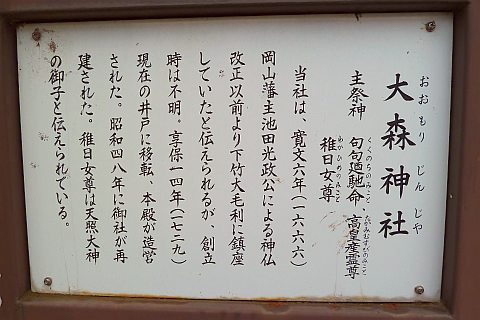 大森神社
おおもりじんじゃ
主祭神
句句廼馳命 高皇産霊尊
くくのちのみこと たかみむすびのみこと
稚日女尊
わかひめのみこと
当社は、寛文六年(一六六六)
岡山藩主池田光政公による神仏
改正以前より下竹大毛利に鎮座
していたと伝えられるが、創立
時は不明。享保一四年(一七二九)
現在の井戸に移転、本殿が造営
された。昭和四八年に御社が再
建された。稚日女尊は天照大神
の御子と伝えられている。